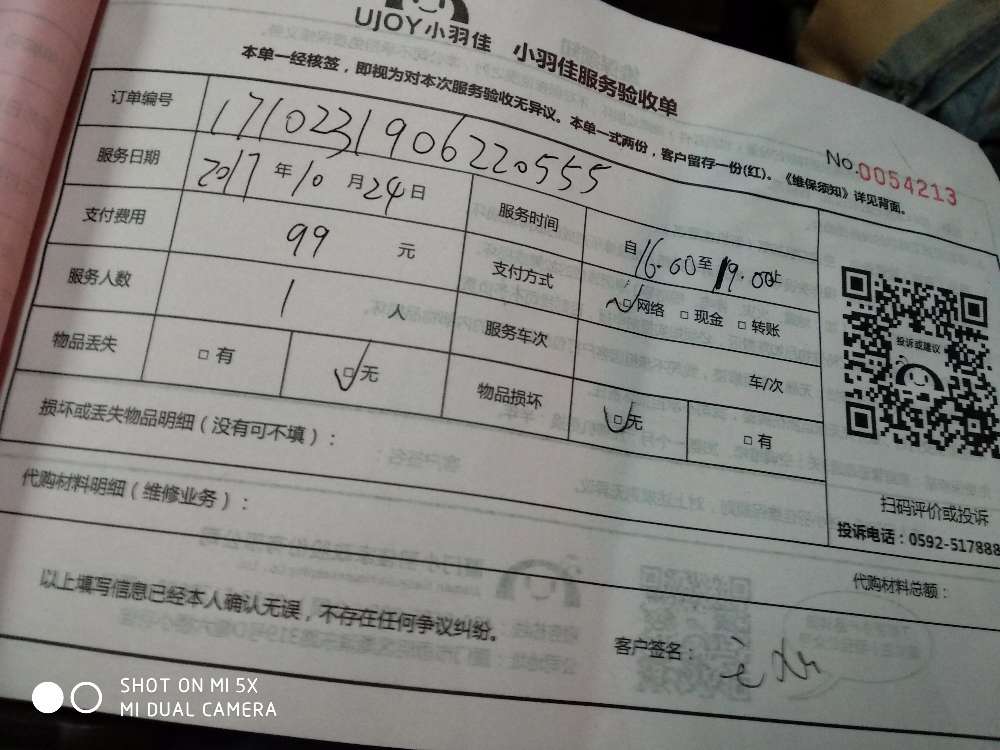 UJOY小羽佳 小羽佳服务验收单
本单一经核签，即视为对本次服务验收无异议。本单一式两份，客户留存一份(红)。《维保须知》详见背面。
No.0054213
订单编号 1710231906220555
服务日期 2017年10月24日 服务时间 自16.00至19.00止
支付费用 99 元 支付方式 ☑网络 □现金 □转账
服务人数 1 人 服务车次 车/次
物品丢失 □有 ☑无 物品损坏 ☑无 □有
投诉或建议
损坏或丢失物品明细（没有可不填）：
扫码评价或投诉
投诉电话：0592-517888
代购材料明细（维修业务）：
代购材料总额：
以上填写信息已经本人确认无误，不存在任何争议纠纷。
客户签名：
SHOT ON MI 5X
MI DUAL CAMERA